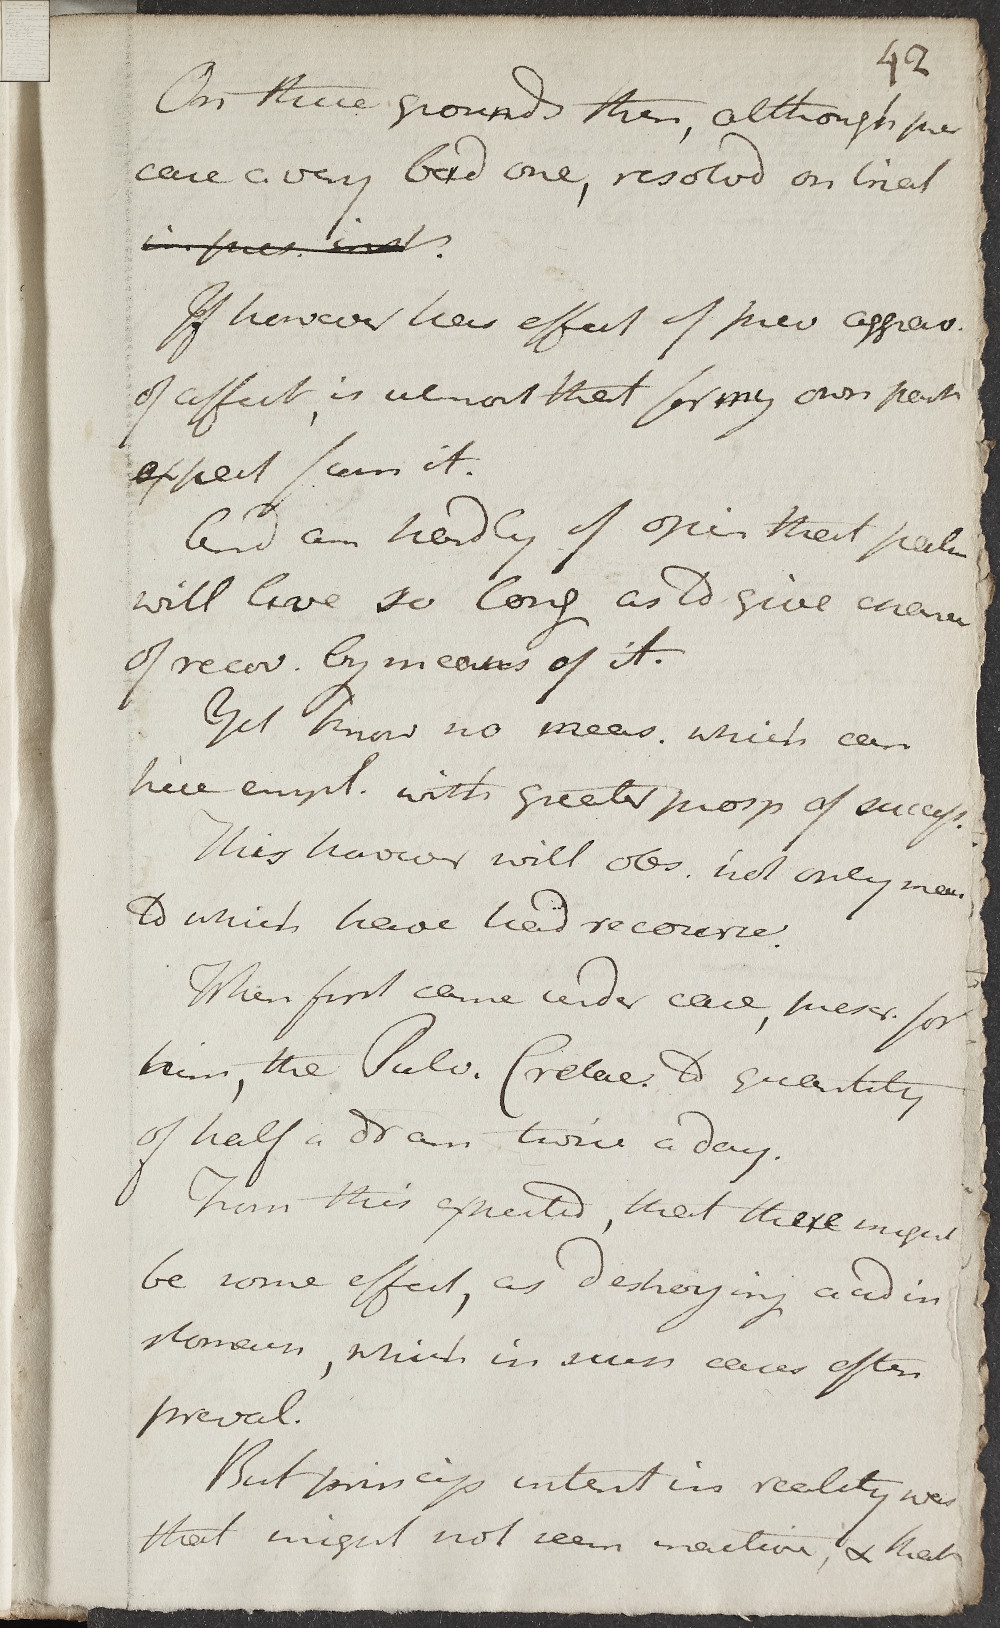 42
On these grounds then, although pres
case a very bad one, resolvd on trial
in pres. inst.
If however has effect of prev aggrav.
of affect, is utmost that for my own part
expect from it.
And am hardly of opin that patien
will live so long as to give chance
of recov. by means of it.
Yet know no meas. which can
here empl. with greater prosp of success.
This however will obs. not only mean
to which have had recourse.
When first came under care, prescr. for
him, the Pulv. Cretac. to quantity
of half a dram twice a day.
From this expected, that there might
be some effect, as destroying acid in
stomach, which in such cases often
preval.
But princip intent in reality was
that might not seem inactive, & that